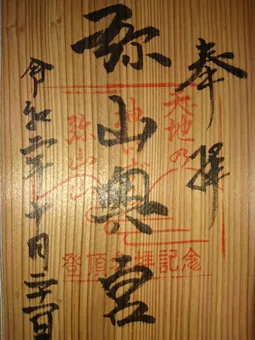 奉拝
天地の
弥山奥宮
弥山
登頂 拝記念
令和二年十月二十一日